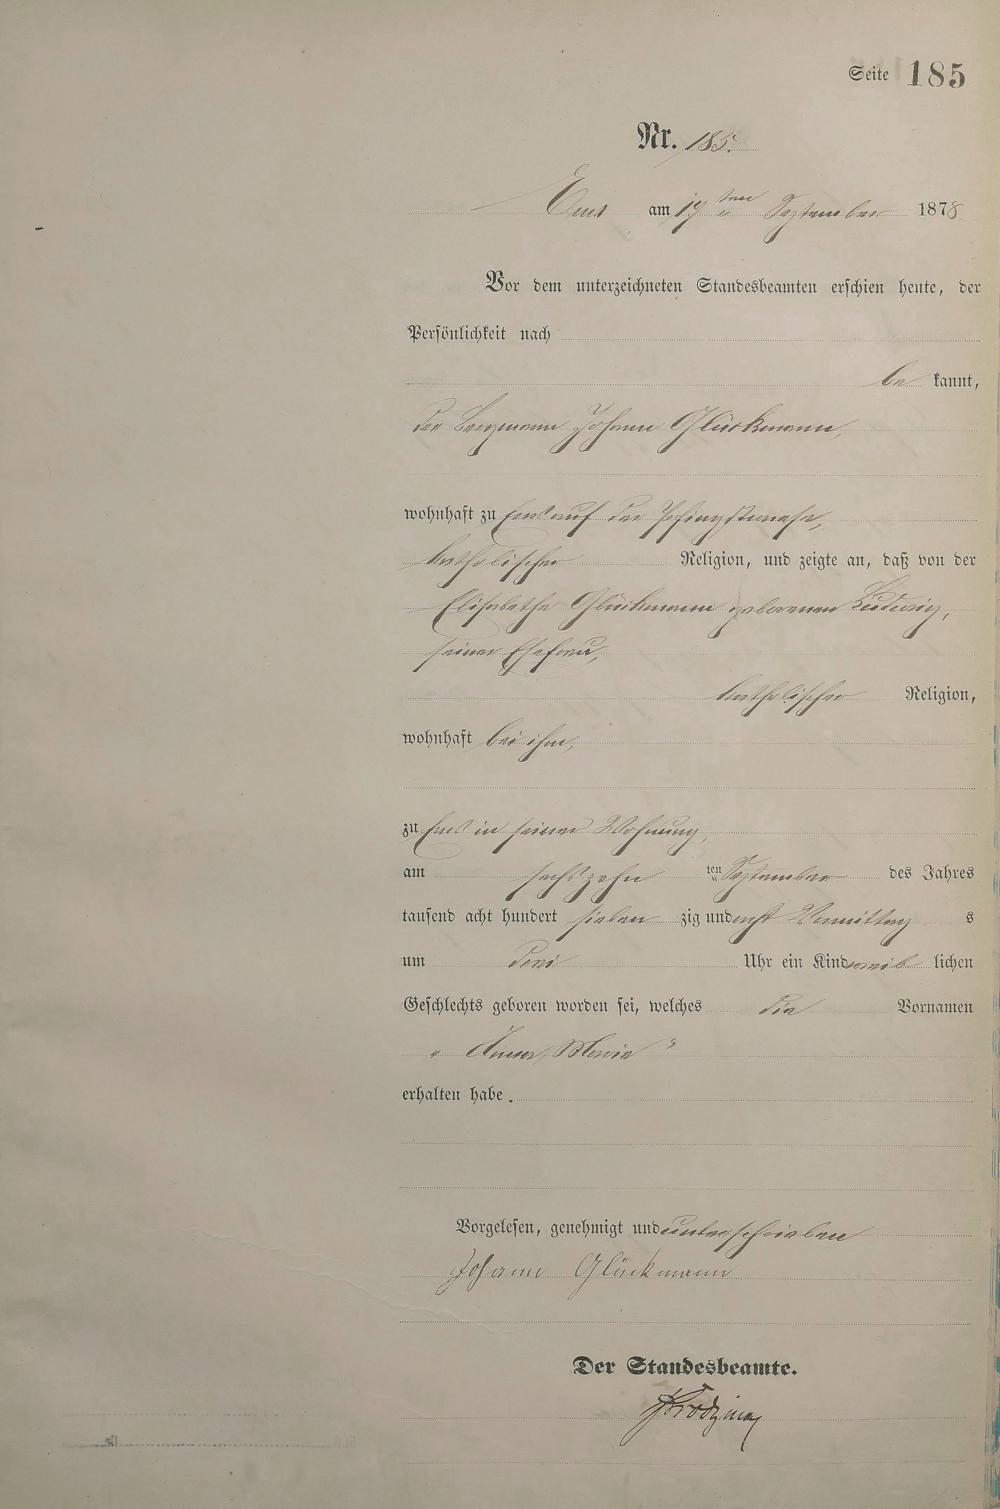 Seite 185
Nr. 185.
Ems am 19ten September 1878
Vor dem unterzeichneten Standesbeamten erschien heute, der
Persönlichkeit nach
be kannt,
der Bergmann Johann Glückmann,
wohnhaft zu Ems auf der
katholischer Religion, und zeigte an, daß von der
Elisabetha Glückmann geborenen Ludwig,
seiner Ehefrau,
katholischer Religion,
wohnhaft bei ihm,
zu Ems in seiner Wohnung,
am sechszehn ten September des Jahres
tausend acht hundert sieben zig und acht Vormittag s
um drei Uhr ein Kind weib lichen
Geschlechts geboren worden sei, welches die Vornamen
„ Anna Maria "
erhalten habe.
Vorgelesen, genehmigt und unterschrieben
Johann Glückmann
Der Standesbeamte.